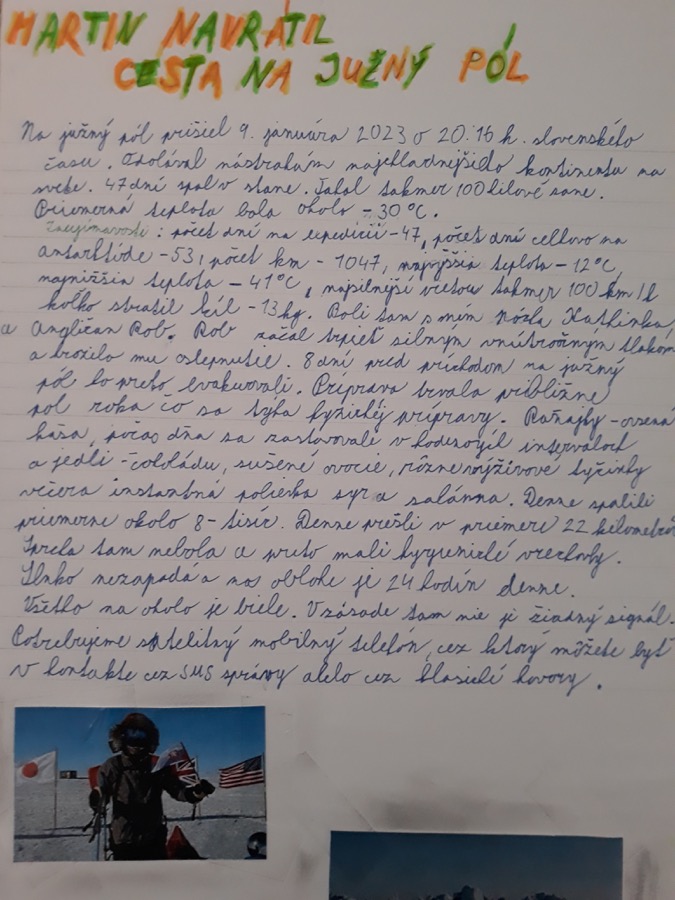 MARTIN NAVRÁTIL
CESTA NA JUŽNÝ PÓL
Na južný pól prišiel 9. januára 2023 o 20:16 h. slovenského
času. Odolával nástrahám najchladnejšieho kontinentu na
svete. 47 dní spal v stane. Ťahal takmer 100 kilové sane.
Priemerná teplota bola okolo -30 °C.
Zaujímavosti: počet dní na expedícii -47, počet dní celkovo na
Antarktíde -53, počet km - 1047, najvyššia teplota -12 °C,
najnižšia teplota - 41 °C, najsilnejší vietor takmer 100 km/h
koľko stratil kíl -13 kg. Boli tam s ním Kathinka,
a Angličan Rob. Rob začal trpieť silným vnútroočným tlakom
a hrozilo mu oslepnutie. 8 dní pred príchodom na južný
pól ho preto evakuovali. Príprava trvala približne
pol roka čo sa týka fyzickéj prípravy. Raňajky - ovsená
kaša, počas dňa sa zastavovali v hodinových intervaloch
a jedli - čokoládu, sušené ovocie, rôzne výživové tyčinky
večera instantná polievka syr a saláma. Denne spálili
priemerne okolo 8-tisíc. Denne prešli v priemere 22 kilometrov
Sprcha tam nebola a preto mali hygienické vreckovky.
Slnko nezapadá a na oblohe je 24 hodín denne.
Všetko na okolo je biele. V zásade tam nie je žiadný signál.
Potrebujeme satelitný mobilný telefón, cez ktorý môžete byť
v kontakte cez SMS správy alebo cez klasické hovory.